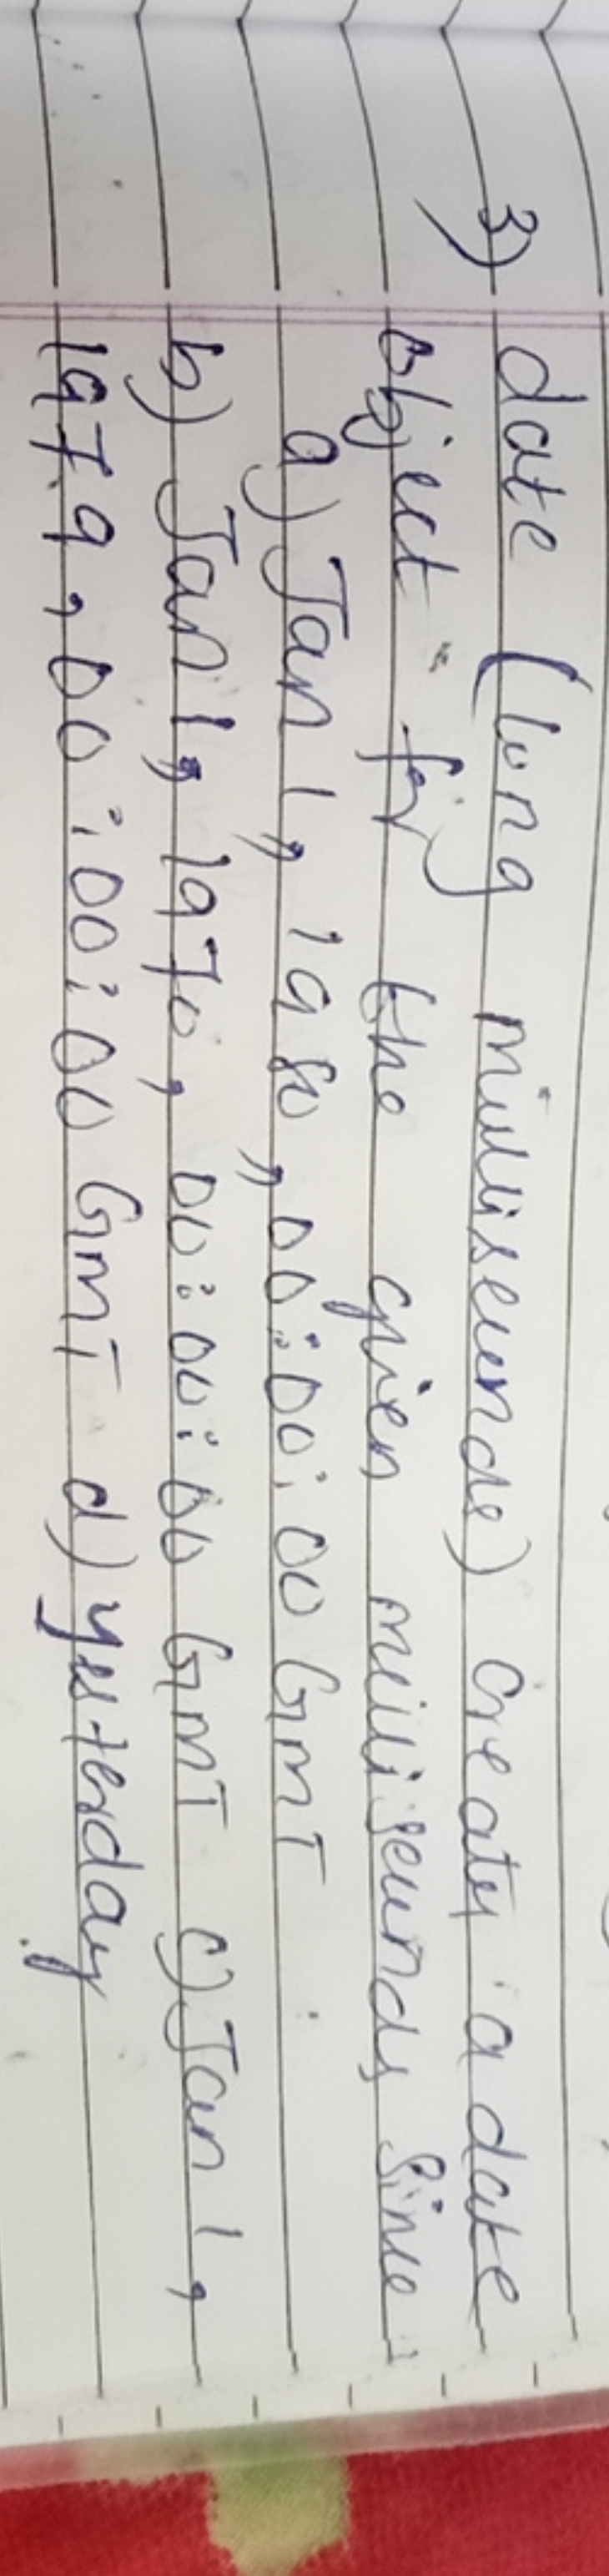 3) date (long milliseconds) creates a date
object for the given milliseconds since
a) Jan 1, 1980, 00:00:00 GMT
b) Jan 1, 1970, 00:00:00 GMT c) Jan 1,
1979, 00:00:00 GMT d) yesterday